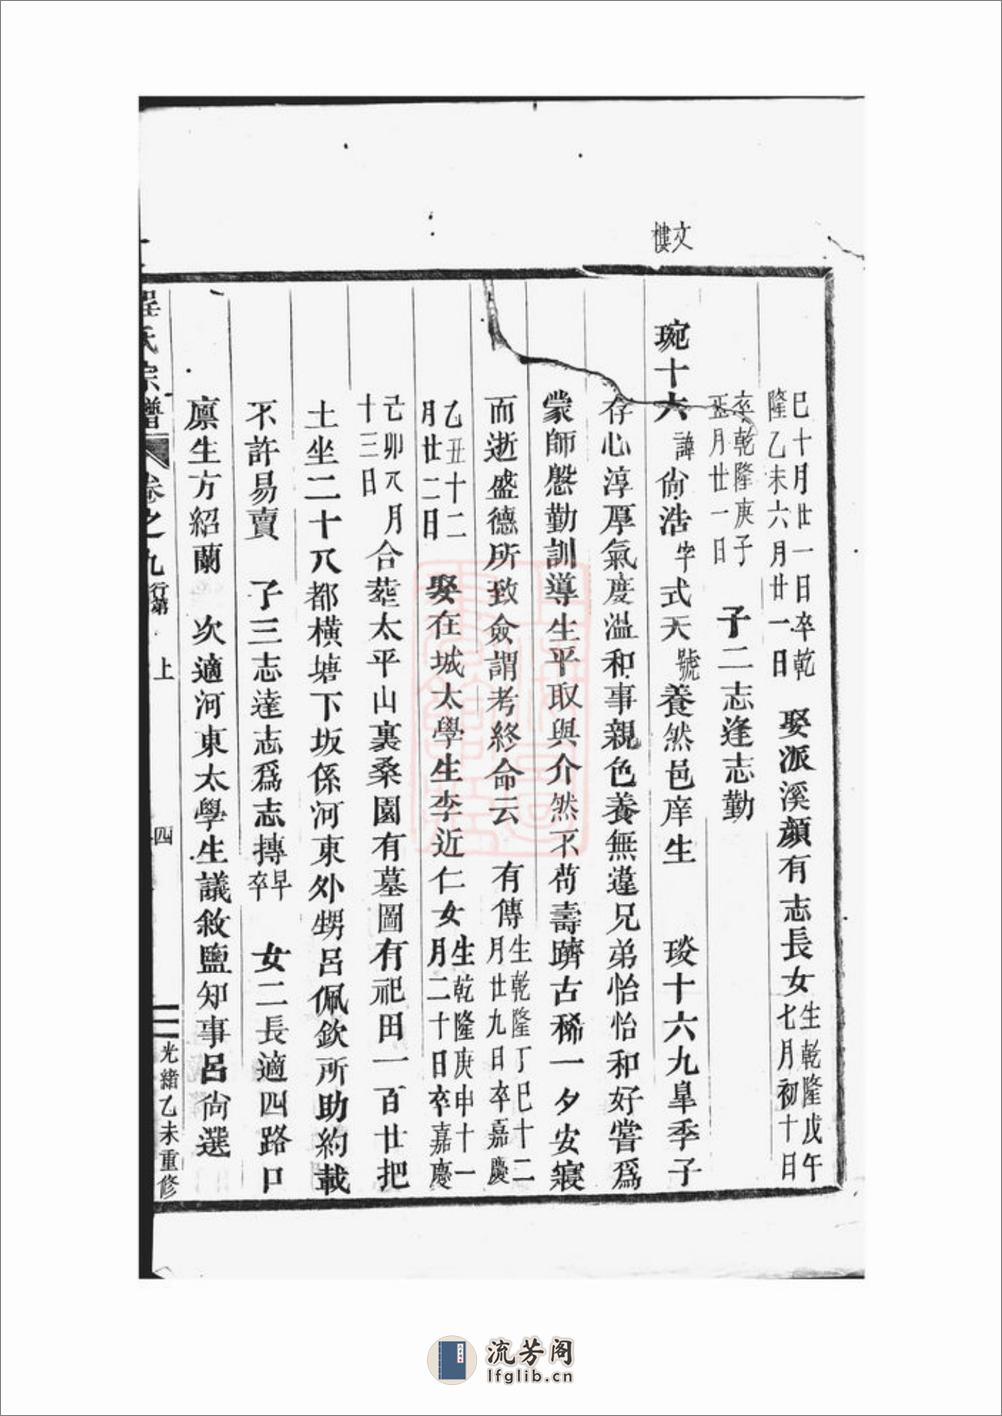 文
樓
巳十月廿一日卒乾
隆乙未六月廿一日
娶派溪顏有志長女
生乾隆戊午
七月初十日
卒乾隆庚子
五月廿一日
子二志逢志勤
琬十六諱尙浩字式天號養然邑庠生 琰十六九臯季子
存心淳厚氣度溫和事親色養無違兄弟怡怡和好嘗爲
蒙師慇勤訓導生平取與介然不苟壽躋古稀一夕安寢
而逝盛德所致僉謂考終命云 有傳
生乾隆丁巳十二
月廿九日卒嘉慶
乙丑十二
月廿二日
娶在城太學生李近仁女
生乾隆庚申十一
月二十日卒嘉慶
己卯八月
十三日
合塟太平山裏桑園有墓圖有祀田一百廿把
土坐二十八都橫塘下坂係河東外甥呂佩欽所助約載
不許易賣 子三志達志爲志摶早卒 女二長適四路口
廩生方紹蘭 次適河東太學生議敘鹽知事呂尙選
程氏宗譜 卷之九行第 上 四
光緒乙未重修
流芳阁
lfglib.cn